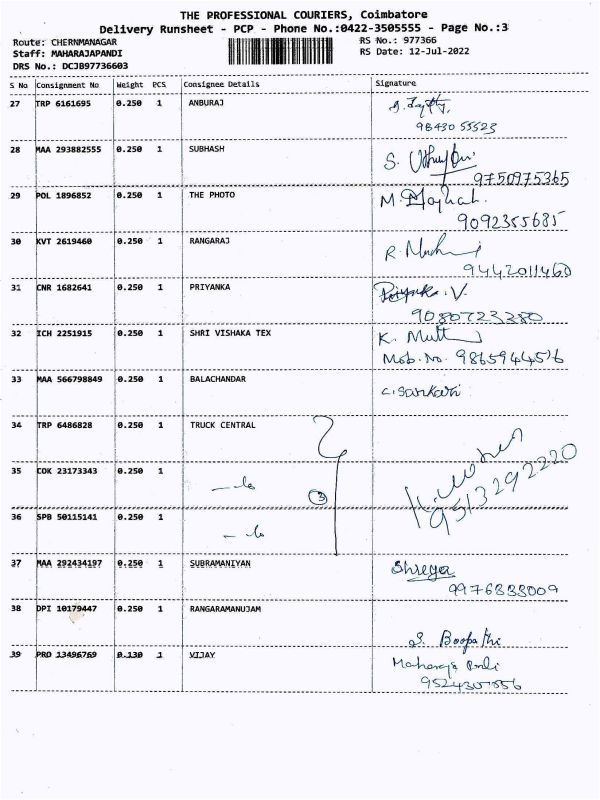 THE PROFESSIONAL COURIERS, Coimbatore
Delivery Runsheet - PCP - Phone No.:0422-3505555 - Page No.:3
Route: CHERNMANAGAR RS No.: 977366
Staff: MAHARAJAPANDI RS Date: 12-Jul-2022
DRS No.: DCJB97736603
S No Consignment No Weight PCS Consignee Details Signature
27 TRP 6161695 0.250 1 ANBURAJ
98430 55523
28 MAA 293882555 0.250 1 SUBHASH S.
9750975365
29 POL 1896852 0.250 1 THE PHOTO M.
9092355685
30 KVT 2619460 0.250 1 RANGARAJ R.
9442011460
31 CNR 1682641 0.250 1 PRIYANKA Priyanka. V.
9080723280
32 ICH 2251915 0.250 1 SHRI VISHAKA TEX K. Mutt
Mob. No. 9865944516
33 MAA 566798849 0.250 1 BALACHANDAR C. Sarkavi
34 TRP 6486828 0.250 1 TRUCK CENTRAL
35 COK 23173343 0.250 1 3
9513292220
36 SPB 50115141 0.250 1
37 MAA 292434197 0.250 1 SUBRAMANIYAN Shreya
9976833009
38 DPI 10179447 0.250 1 RANGARAMANUJAM
S. Boopathi
39 PRD 13496769 0.130 1 VIJAY Maharaja